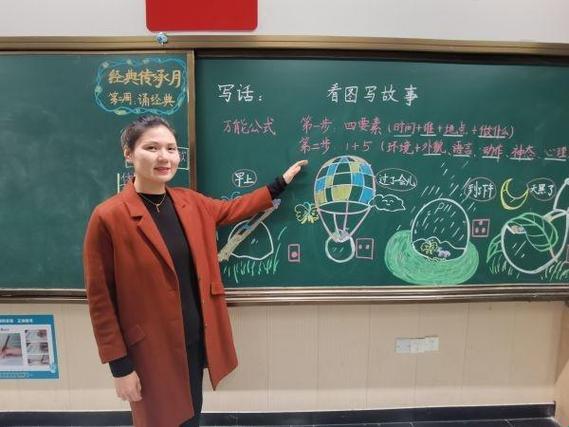 经典传承月
第二周：诵经典
写话：
看图写故事
万能公式
第一步：四要素（时间+谁+地点+做什么）
第二步：1+5（环境+外貌、语言、动作、神态、心理
早上
过了一会儿
到了下午
天黑了